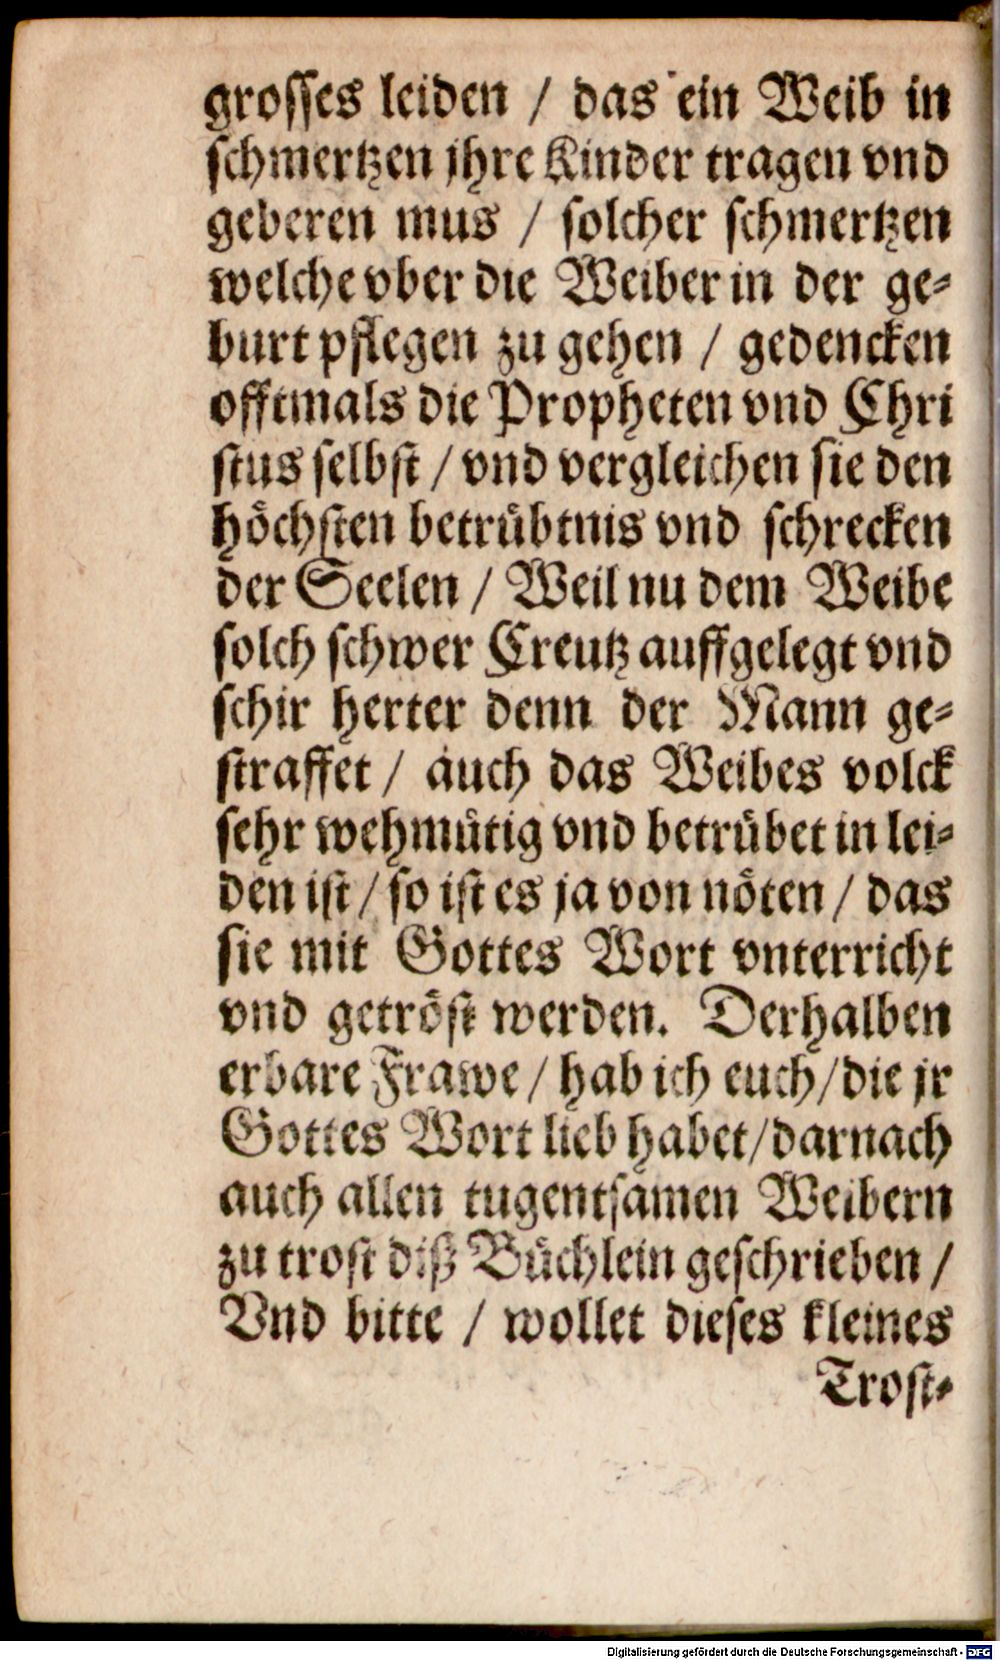 grosses leiden / das ein Weib in
schmertzen jhre Kinder tragen vnd
geberen mus / solcher schmertzen
welche vber die Weiber in der ge⸗
burt pflegen zu gehen / gedencken
offtmals die Propheten vnd Chri
stus selbst / vnd vergleichen sie den
höchsten betrübtnis vnd schrecken
der Seelen / Weil nu dem Weibe
solch schwer Creutz auffgelegt vnd
schir herter denn der Mann ge⸗
straffet / auch das Weibes volck
sehr wehmütig vnd betrübet in lei⸗
den ist / so ist es ja von nöten / das
sie mit Gottes Wort vnterricht
vnd getröst werden. Derhalben
erbare Frawe / hab ich euch / die jr
Gottes Wort lieb habet / darnach
auch allen tugentsamen Weibern
zu trost diß Büchlein geschrieben /
Vnd bitte / wollet dieses kleines
Trost⸗
Digitalisierung gefördert durch die Deutsche Forschungsgemeinschaft - DFG